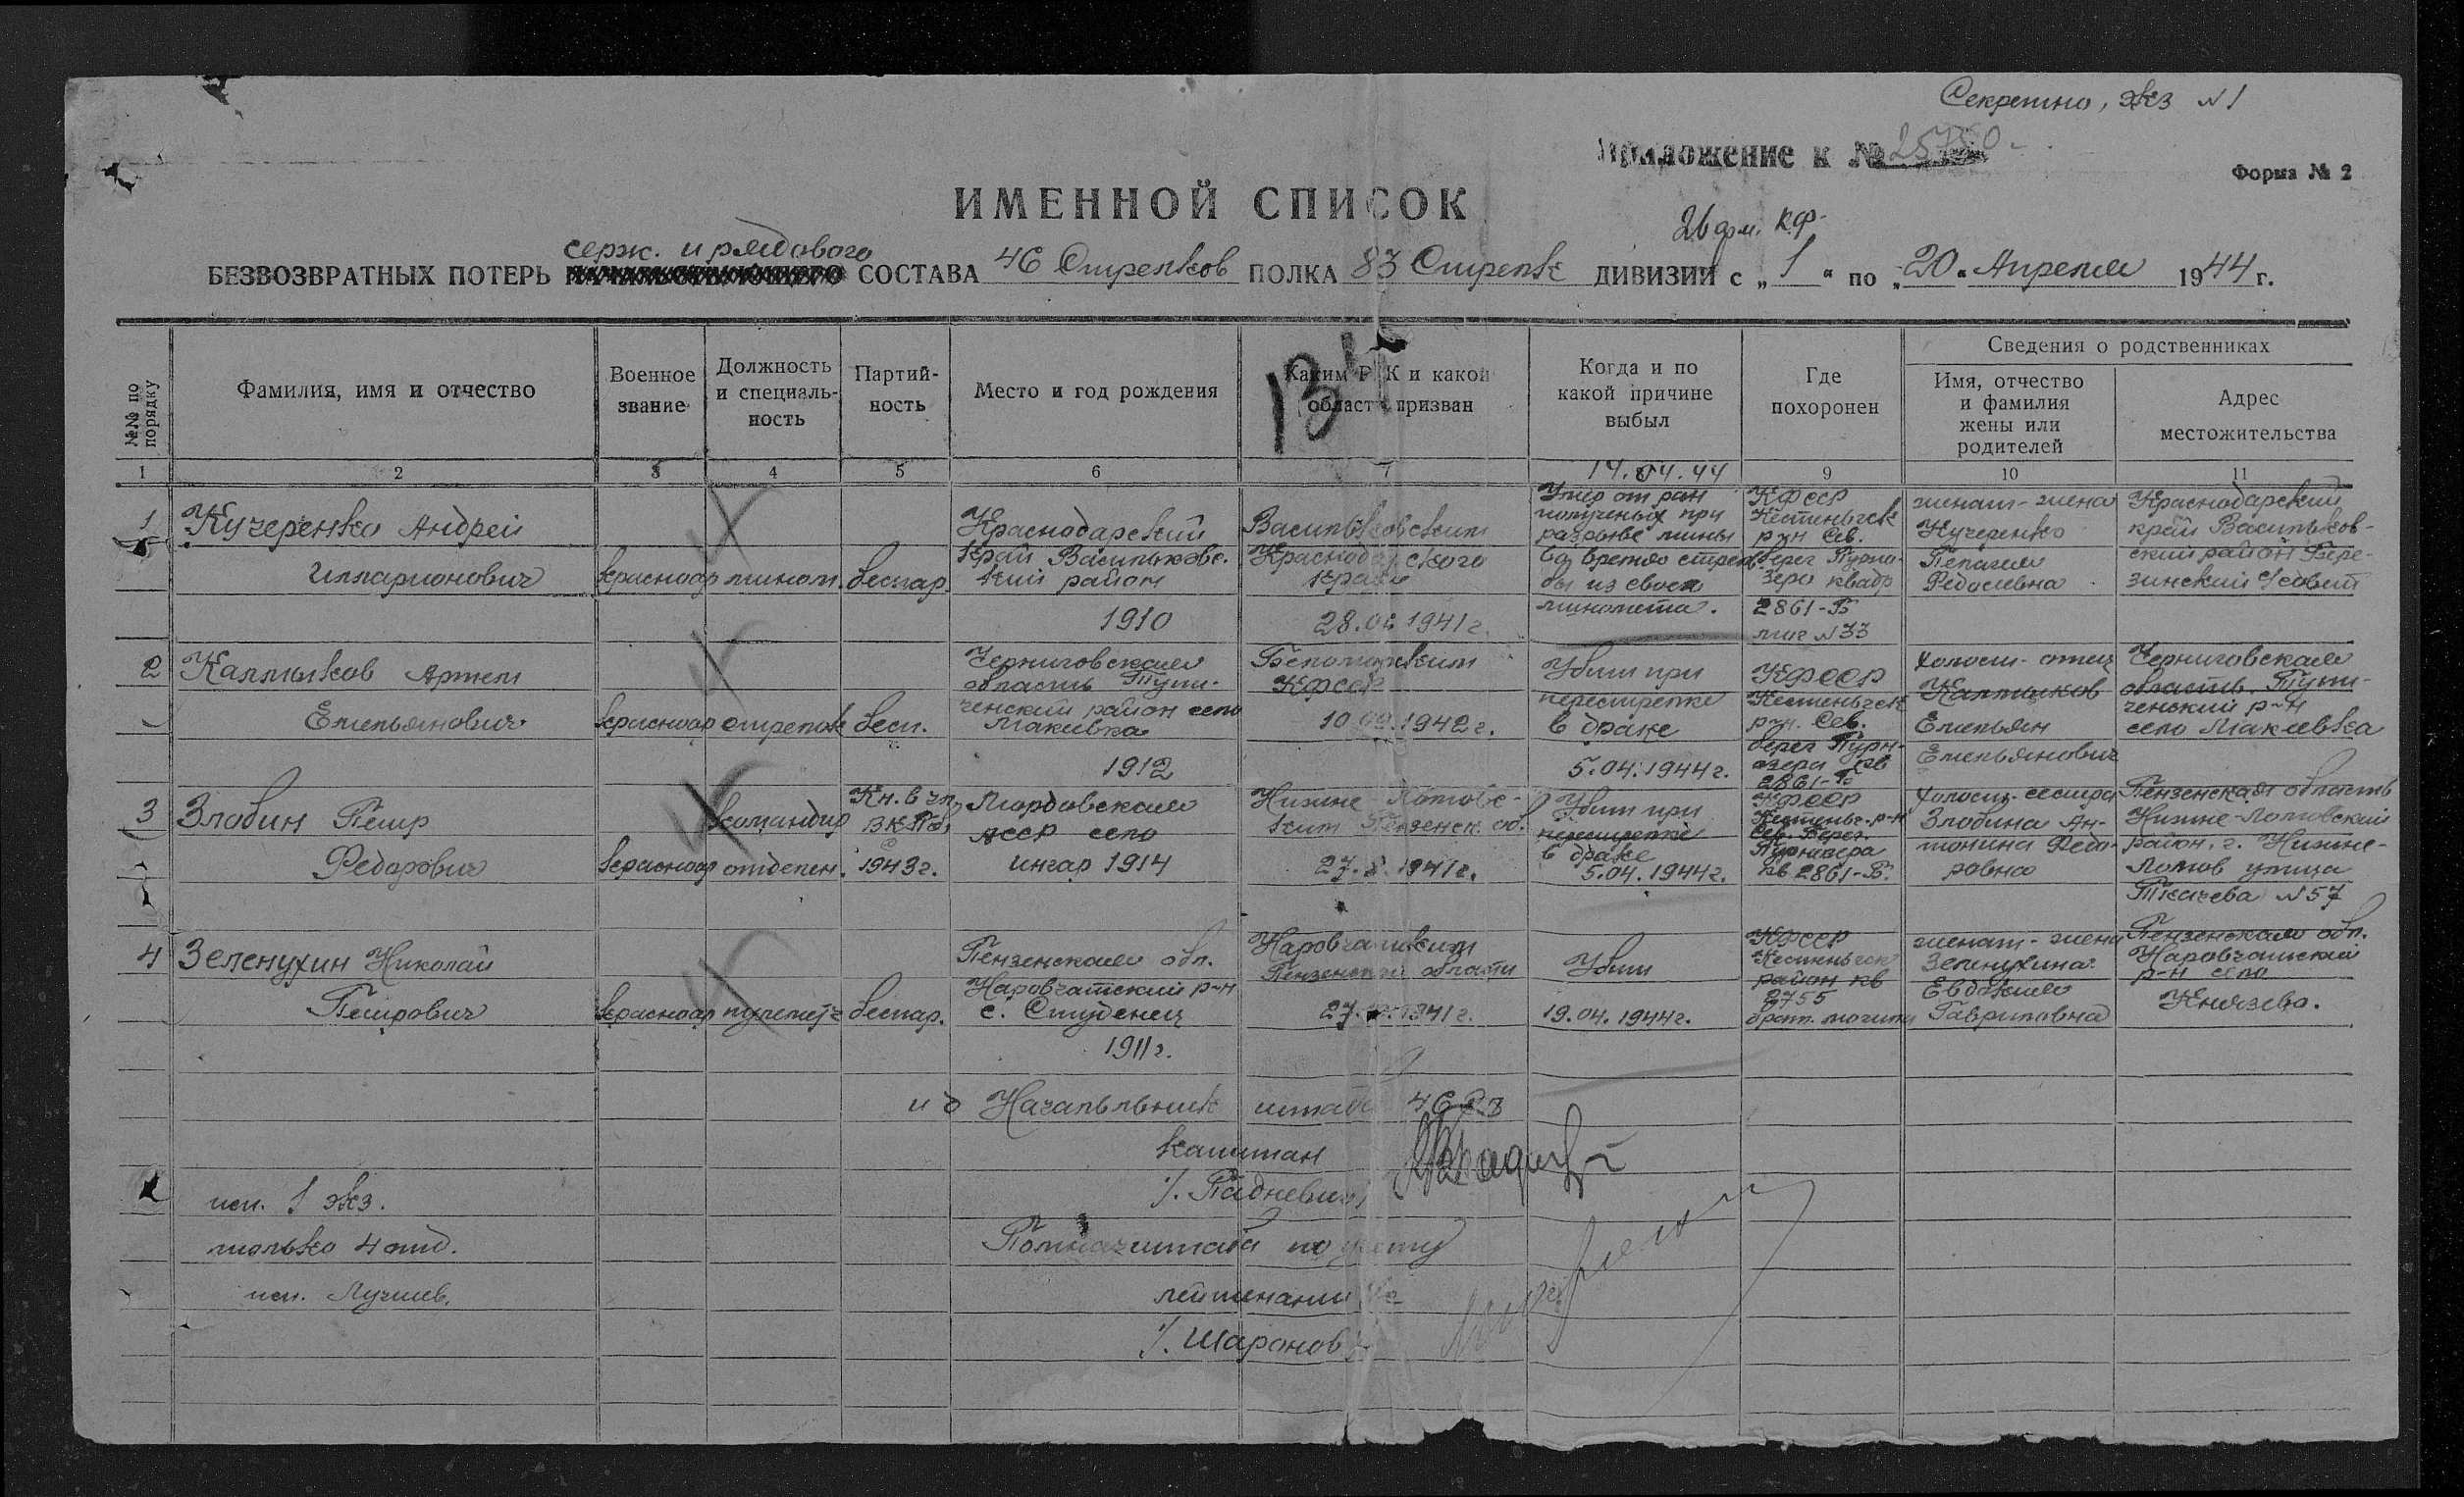 Секретно, экз N 1
Приложение к № 25750
Форма № 2
ИМЕННОЙ СПИСОК
26 арм. К.Ф.
серж. и рядового
БЕЗВОЗВРАТНЫХ ПОТЕРЬ СОСТАВА 46 Стрелков ПОЛКА 83 Стрелк ДИВИЗИИ с „1“ по „20“ Апреля 1944 г.
№№ по порядку
Фамилия, имя и отчество
Военное звание
Должность и специальность
Партийность
Место и год рождения
Каким РВК и какой област призван
Когда и по какой причине выбыл
Где похоронен
Сведения о родственниках
Имя, отчество и фамилия жены или родителей
Адрес местожительства
1 2 3 4 5 6 7 8 9 10 11
1
Кучеренко Андрей
Илларионович
красноар
мином.
беспар.
Краснодарский
край Васильковс-
кий район
1910
Васильковским
Краснодарского
края
28. 1941 г.
14.04.44
Умер от ран
полученых при
разрыве мины
во время стрель
бы из своего
миномета.
КФССР
Кестеньгск
р-н Сев.
берег
зеро квадр
2861-Б
мог N 33
женат - жена
Кучеренко
Пелагея
Федосеевна
Краснодарский
край Васильков-
ский район Бере-
зинский с/совет
2
Калмыков Артем
Емельянович
красноар
стрелок
бесп.
Черниговская
область Тупи-
ченский район село
Макеевка
1912
Беломорским
КФССР
10.09.1942 г.
Убит при
перестрелке
в драке
5.04.1944 г.
КФССР
Кестеньгск
р-н. Сев.
берег Пурн-
озера кв
2861-Б
холост - отец
Калмыков
Емельян
Емельянович
Черниговская
область Тупи-
ченский р-н
село Макеевка
3
Злобин Петр
Федорович
красноар
командир
отделен.
Кн. в чл.
ВКПб,
1943 г.
Мордовская
АССР село
ингар 1914
Нижне-Ломовс-
ким Пензенск. об.
27. 1941 г.
Убит при
перестрелке
в драке
5.04.1944 г.
КФССР
Кестеньг. р-н
Сев. Берег.
Пурнозера
кв 2861-Б.
холост - сестра
Злобина Ан-
тонина Федо-
ровна
Пензенская область
Нижне-Ломовский
район, г. Нижне-
Ломов улица
Ткачева N 57
4
Зеленухин Николай
Петрович
красноар
пулеметч
беспар.
Пензенская обл.
Наровчатский р-н
с. Студенец
1911 г.
Наровчатским
Пензенской области
27. 1941 г.
Убит
19.04.1944 г.
КФССР
Кестеньгск
район кв
2755
братт. могила
женат - жена
Зеленухина
Евдокия
Гавриловна
Пензенская обл.
Наровчатский
р-н село
Князево.
и д Начальльник штаба 46
капитан
/. Падневич
Помначштаба по учету
лейтенант
/. Шаронов /
исп. 1 экз.
только 4 отд.
исп. Лучшев.